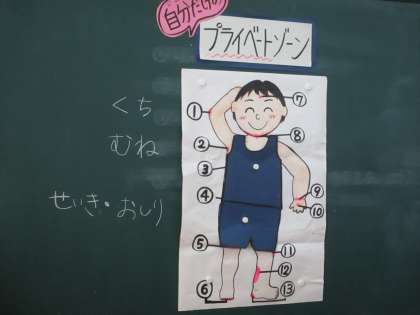 自分だけの
プライベートゾーン
くち
むね
せいき・おしり
①
⑦
②
⑧
③
⑨
④
⑩
⑤
⑪
⑫
⑥
⑬